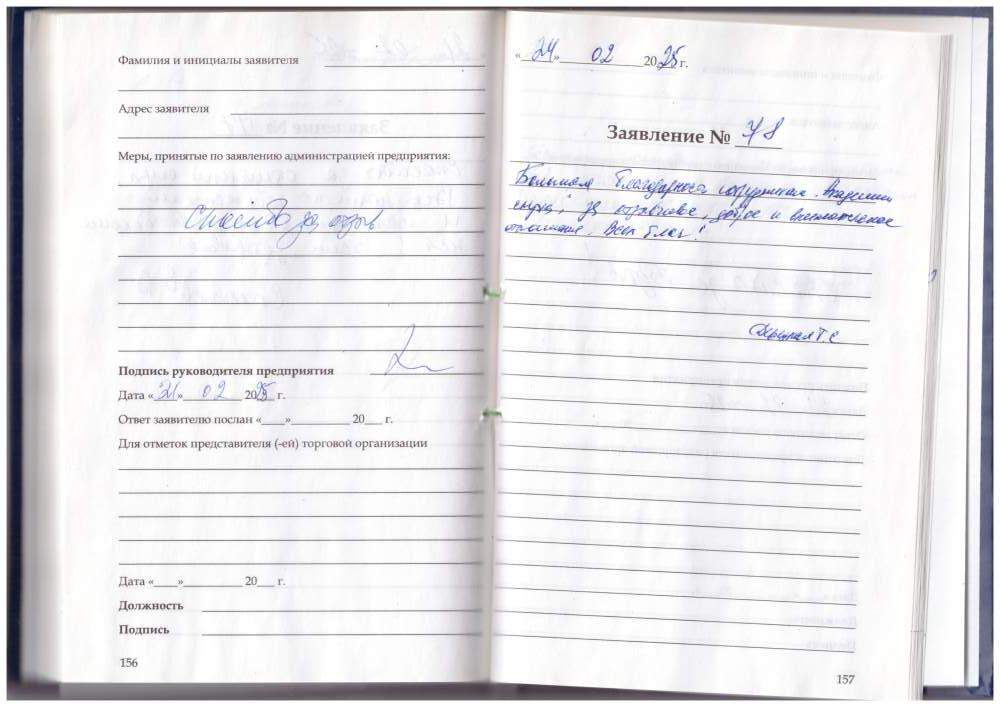 Фамилия и инициалы заявителя
Адрес заявителя
Меры, принятые по заявлению администрацией предприятия:
Спасибо за отзыв
Подпись руководителя предприятия
Дата «24» 02 2025 г.
Ответ заявителю послан «___» 20___ г.
Для отметок представителя (-ей) торговой организации
Дата «___» 20___ г.
Должность
Подпись
156
«24» 02 2025 г.
Заявление № 78
Большая благодарность сотрудникам „Академии
сыра“, за отзывчивое, доброе и внимательное
отношение. Всех благ!
Т. С
157